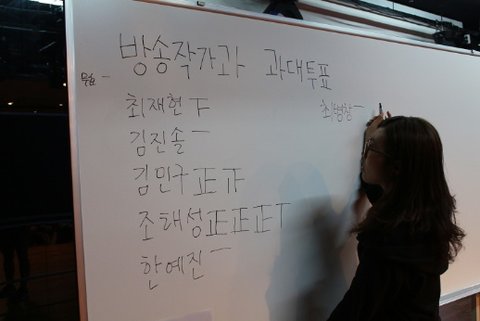 방송작가과 과대투표
무효 一
최재헌 下
김진솔 一
김민구 正 下
조태성 正正正丅
한예진 一
최병상 一